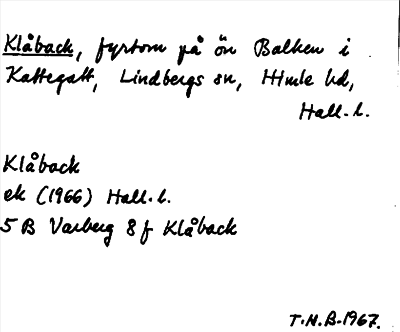 Klåback, fyrtorn på ön Balken i
Kattegatt, Lindbergs sn, Himle hd,
Hall. l.
Klåback
ek (1966) Hall. l.
5 B Varberg 8 f Klåback
T.H.B. 1967.